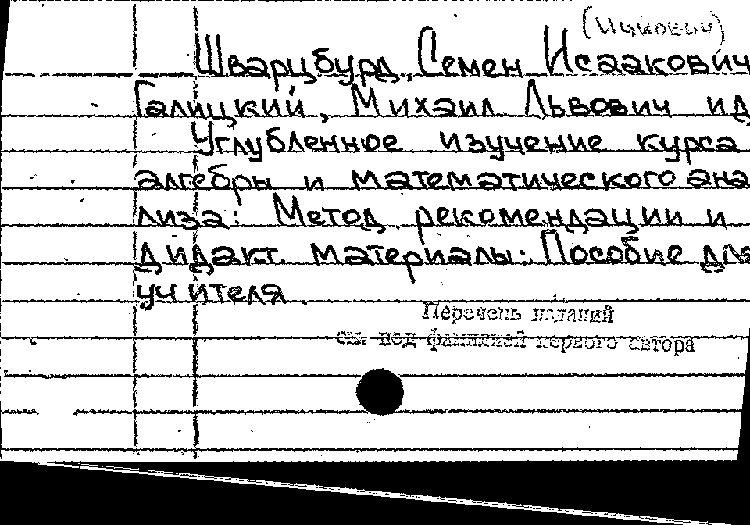 Шварцбурд, Семен Исаакович
Галицкий, Михаил Львович и д
Углубленное изучение курса
алгебры и математического ана
лиза: Метод рекомендации и
дидакт. материалы: Пособие для
учителя.
Перечень изданий
см. под фамилией первого автора